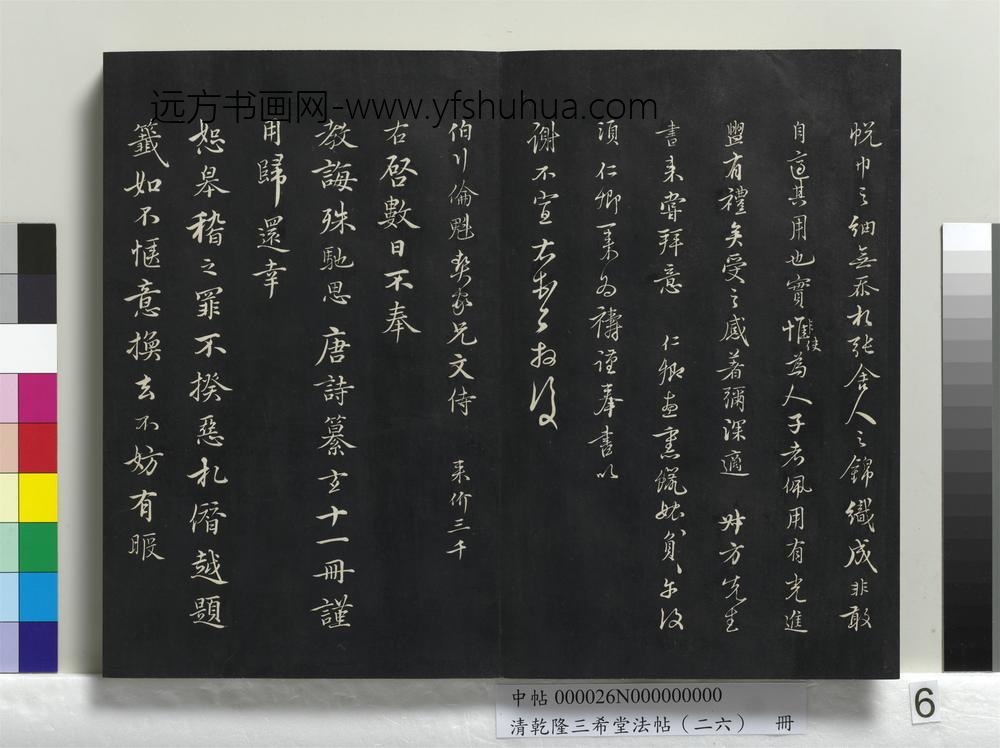 远方书画网-www.yfshuhua.com
帨巾之细無忝於張舍人之錦織成非敢
自適其用也實惟為人子者佩用有光進
非使
盥有禮矣受之感著彌深適 方先生
書来嘗拜意 仁卿惠熏
須仁卿来為禱謹奉書以
謝不宣 大啓公拜復
伯行倫魁契家兄文侍 来价三千
右啓數日不奉
教誨殊馳思 唐詩纂玄十一冊謹
用歸還幸
恕皋稽之罪不揆惡札僭越題
籤如不愜意換去不妨有暇
中帖 000026N000000000
清乾隆三希堂法帖（二六） 冊
6